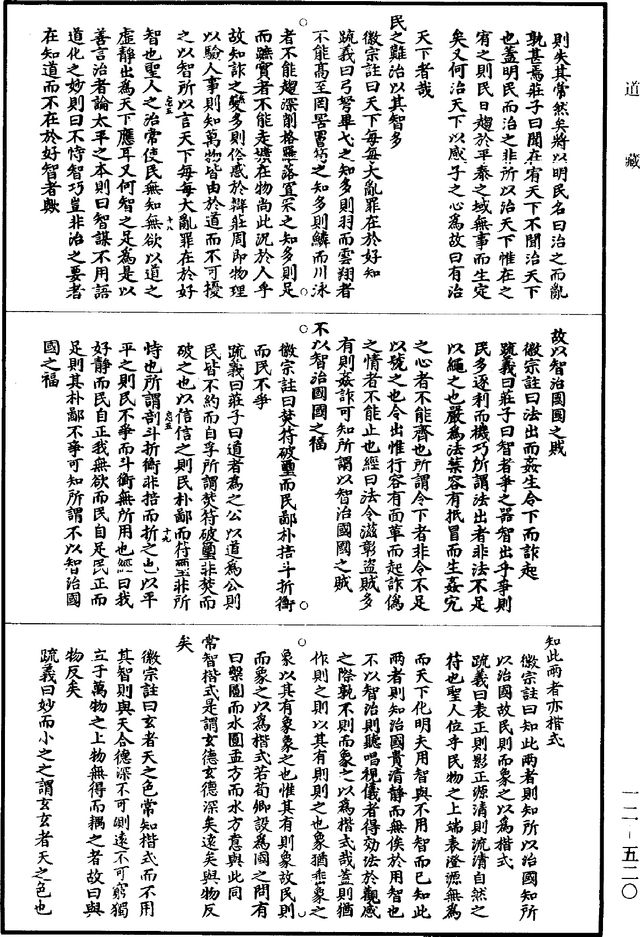 道藏
則失其常然矣將以明民名曰治之而亂
孰甚焉莊子曰聞在宥天下不聞治天下
也蓋明民而治之非所以治天下惟在之
宥之則民日趨於平泰之域無事而生定
矣又何治天下以惑子之心為故曰有治
天下者哉
民之難治以其智多
徽宗註曰天下每每大亂罪在於好知
疏義曰弓弩畢弋之知多則羽而雲翔者
不能高至罔罟罾笱之知多則鱗而川泳
者不能趨深削格羅落罝罘之知多則足
而蹠實者不能走壙在物尚此況於人乎
故知詐之變多則俗惑於辯莊周即物理
以驗人事則知萬物皆由於道而不可擾
之以智所以言天下每每大亂罪在於好
智也聖人之治常使民無知無欲以道之
虛靜出為天下應耳又何智之足為是以
善言治者論太平之本則曰智謀不用語
道化之妙則曰不恃智巧豈非治之要者
在知道而不在於好智者歟
故以智治國國之賊
徽宗註曰法出而姦生令下而詐起
疏義曰莊子曰智者爭之器智出乎爭則
民多逐利而機巧所謂法出者非法不足
以繩之也嚴為法禁容有抵冒而生姦宄
之心者不能齊也所謂令下者非令不足
以號之也令出惟行容有面革而起詐偽
之情者不能止也經曰法令滋彰盜賊多
有則姦詐可知所謂以智治國國之賊
不以智治國國之福
徽宗註曰焚符破璽而民鄙朴掊斗折衡
而民不爭
疏義曰莊子曰道者為之公以道為公則
民皆不約而自孚所謂焚符破璽非焚而
破之也以信信之則民朴鄙而符璽非所
恃也所謂剖斗折衡非掊而折之也以平
平之則民不爭而斗衡無所用也經曰我
好靜而民自正我無欲而民自足民正而
足則其朴鄙不爭可知所謂不以智治國
國之福
知此兩者亦楷式
徽宗註曰知此兩者則知所以治國知所
以治國故民則而象之以為楷式
疏義曰表正則影正源清則流清自然之
符也聖人位乎民物之上端表澄源無為
而天下化明夫用智與不用智而已知此
兩者則知治國貴清靜而無俟於用智也
不以智治則聽唱視儀者得効法於觀感
之際孰不則而象之以為楷式哉蓋則猶
作則之則以其有則則之也象猶垂象之
象以其有象象之也惟其有則象故民則
而象之以為楷式若荀卿設為國之問有
曰槃圓而水圓盂方而水方意與此同
常智楷式是謂玄德玄德深矣遠矣與物反
矣
徽宗註曰玄者天之色常知楷式而不用
其智則與天合德深不可測遠不可窮獨
立于萬物之上物無得而耦之者故曰與
物反矣
疏義曰妙而小之之謂玄玄者天之色也
一二－五二〇